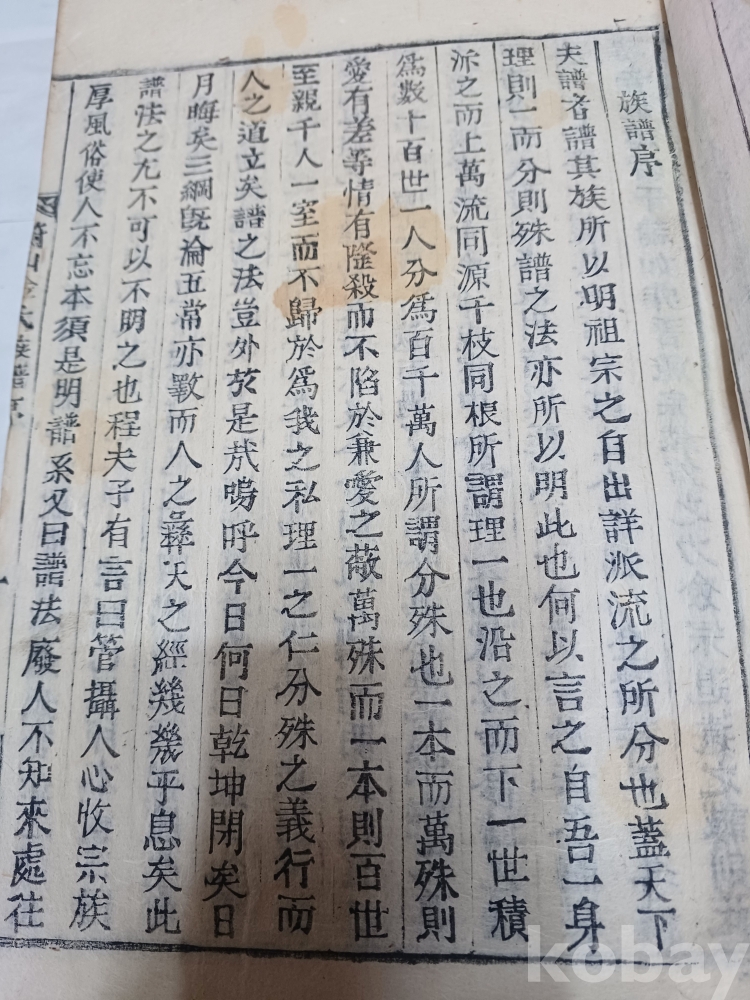 族譜序
夫譜者譜其族所以明祖宗之自出詳派流之所分也蓋天下
理則一而分則殊譜之法亦所以明此也何以言之自吾一身
泝之而上萬流同源千枝同根所謂理一也沿之而下一世積
爲數十百世一人分爲百千萬人所謂分殊也一本而萬殊則
愛有差等情有隆殺而不陷於兼愛之蔽萬殊而一本則百世
至親千人一室而不歸於爲我之私理一之仁分殊之義行而
人之道立矣譜之法豈外於是哉嗚呼今日何日乾坤閉矣日
月晦矣三綱旣淪五常亦斁而人之彝天之經幾幾乎息矣此
譜法之尤不可以不明之也程夫子有言曰管攝人心收宗族
厚風俗使人不忘本須是明譜系又曰譜法廢人不知來處往
山金氏族譜序
kobay